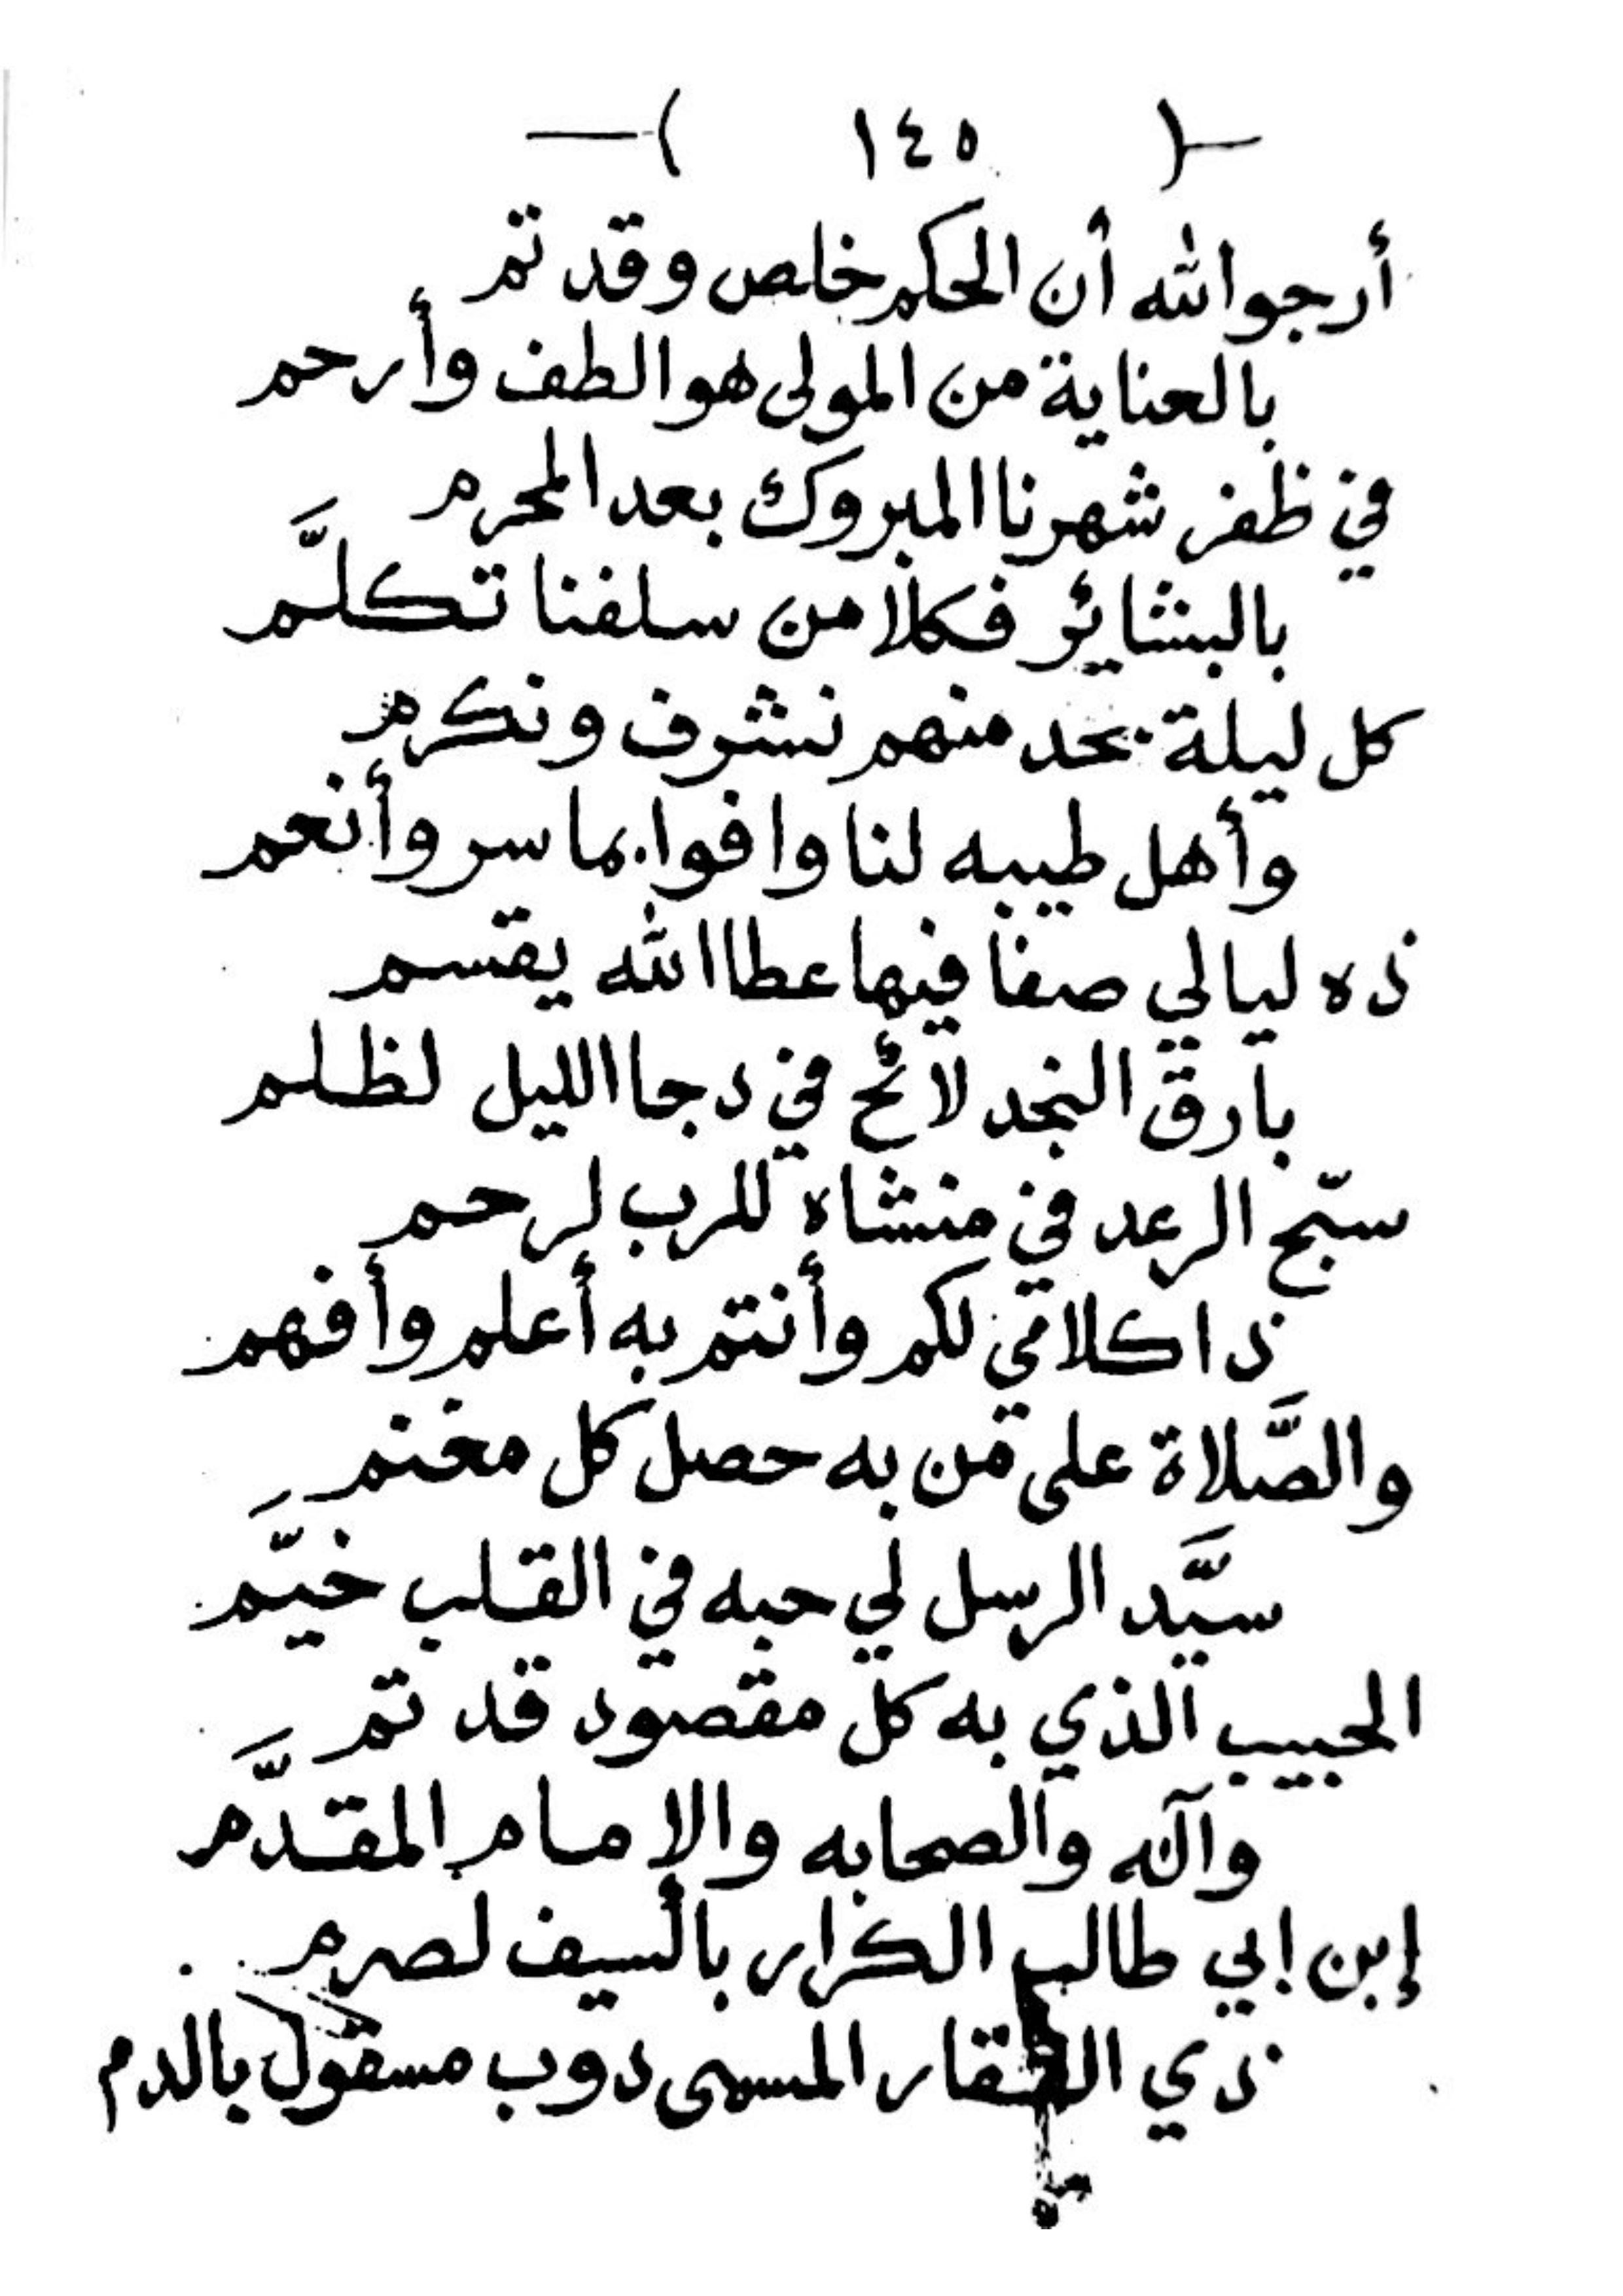 ( ١٤٥ )
أرجو الله أن الحكم خلص وقد تم
بالعناية من المولى هو الطف وأرحم
في ظفر شهرنا المبروك بعد المحرم
بالبشائر فكلا من سلفنا تكلَّم
كل ليلة بحد منهم نشرف ونكرم
وأهل طيبه لنا وافوا بما سر وأنعم
ذه ليالي صفا فيها عطا الله يقسم
بارق النجد لائح في دجا الليل لظلم
سبّح الرعد في منشاه للرب لرحم
ذا كلامي لكم وأنتم به أعلم وأفهم
والصَّلاة على من به حصل كل مغنم
سيَّد الرسل لي حبه في القلب خيَّم
الحبيب الذي به كل مقصود قد تم
وآله والصحابه والإمام المقدَّم
إبن إبي طالب الكرار بالسيف لصرم
ذي الفقار المسمى دوب مسقول بالدم